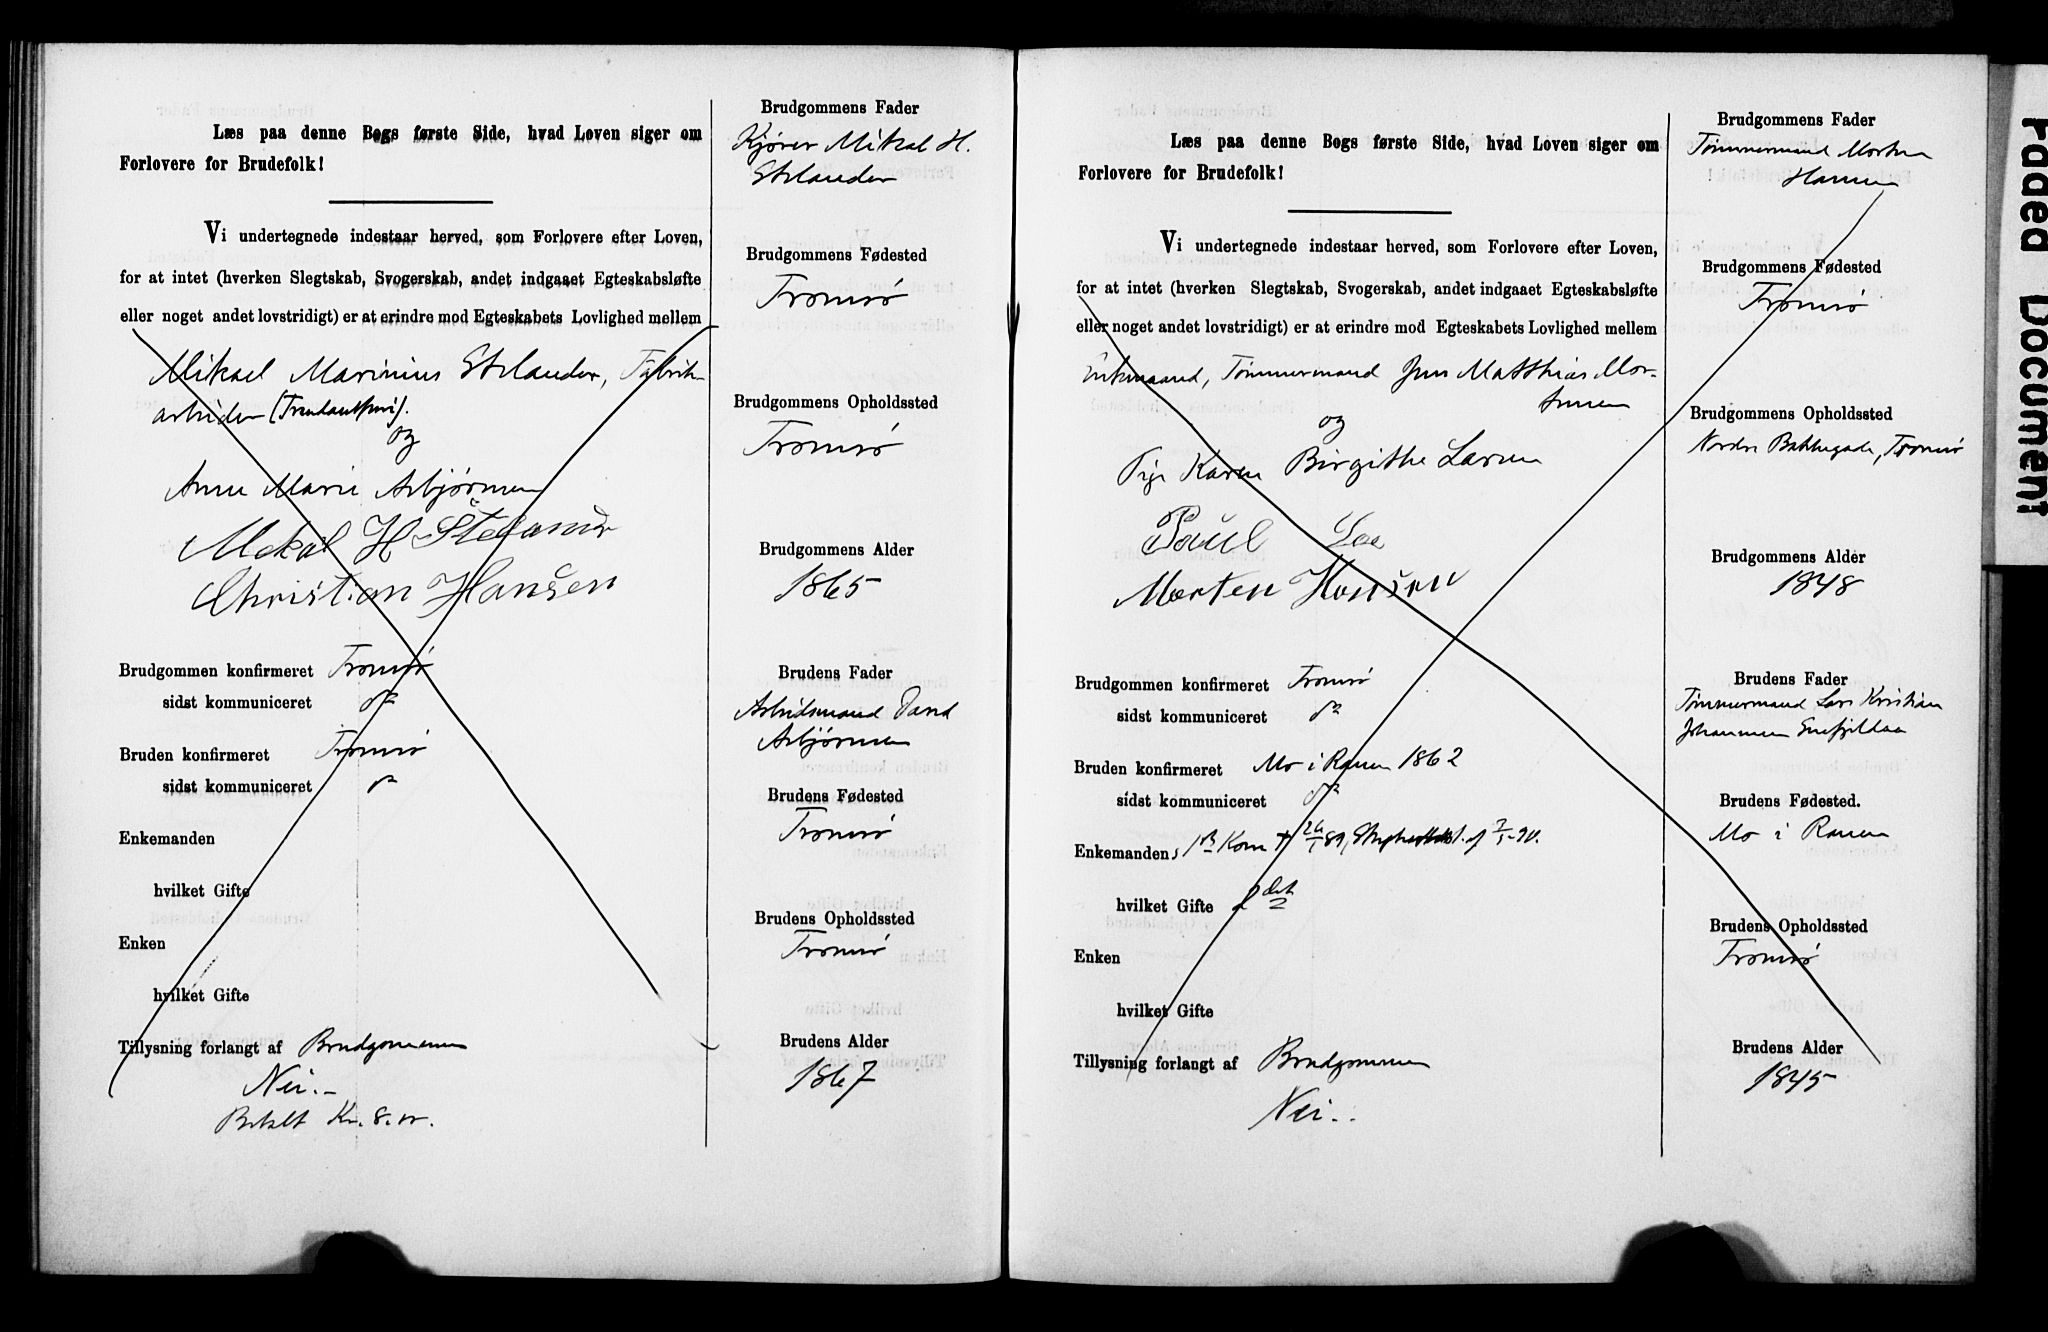 Læs paa denne Bogs første Side, hvad Loven siger om
Forlovere for Brudefolk!
Vi undertegnede indestaar herved, som Forlovere efter Loven,
for at intet (hverken Slegtskab, Svogerskab, andet indgaaet Egteskabsløfte
eller noget andet lovstridigt) er at erindre mod Egteskabets Lovlighed mellem
Mikael Marinius Stelander, Fabrik-
arbeider
og
Anne Marie Asbjørnsen
Mekal H Stelander
Christian Hansen
Brudgommen konfirmeret Tromsø
sidst kommuniceret do
Bruden konfirmeret Tromsø
sidst kommuniceret do
Enkemanden
hvilket Gifte
Enken
hvilket Gifte
Tillysning forlangt af Brudgommen
Nei.-
Betalt Kr. 8.
Brudgommens Fader
Kjører Mikal H.
Stelander
Brudgommens Fødested
Tromsø
Brudgommens Opholdssted
Tromsø
Brudgommens Alder
1865
Brudens Fader
Arbeidsmand David
Asbjørnsen
Brudens Fødested
Tromsø
Brudens Opholdssted
Tromsø
Brudens Alder
1867
Læs paa denne Bogs første Side, hvad Loven siger om
Forlovere for Brudefolk!
Vi undertegnede indestaar herved, som Forlovere efter Loven,
for at intet (hverken Slegtskab, Svogerskab, andet indgaaet Egteskabsløfte
eller noget andet lovstridigt) er at erindre mod Egteskabets Lovlighed mellem
Enkemand, Tømmermand Jens Matthias Mor-
tensen
og
Pige Karen Birgithe Larsen
Paul
Morten Hansen
Brudgommen konfirmeret Tromsø
sidst kommuniceret do
Bruden konfirmeret Mo i Ranen 1862
sidst kommuniceret do
Enkemandens 1ste Kone † 26/1 89, af 7/5-90.
hvilket Gifte 2det
Enken
hvilket Gifte
Tillysning forlangt af Brudgommen
Nei..
Brudgommens Fader
Tømmermand Morten
Hansen
Brudgommens Fødested
Tromsø
Brudgommens Opholdssted
Nordre Bakkegade, Tromsø
Brudgommens Alder
1848
Brudens Fader
Tømmermand Lars Kristian
Johannesen
Brudens Fødested.
Mo i Ranen
Brudens Opholdssted
Tromsø
Brudens Alder
1845
Faded Document